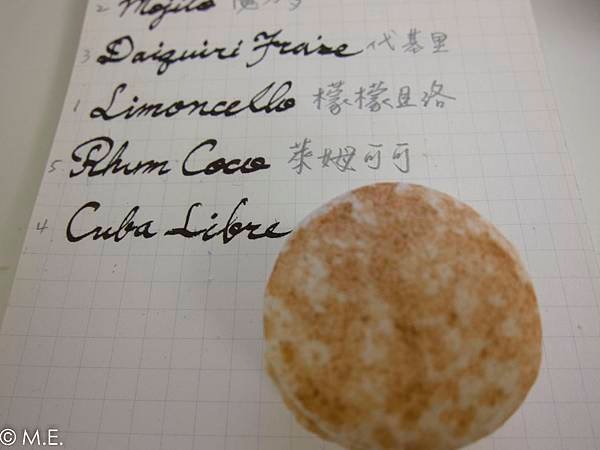 2 Mojito
3 Daiquiri Fraize 代基里
1 Limoncello 檬檬旦洛
5 Rhum Coco 萊姆可可
4 Cuba Libre
© M.E.